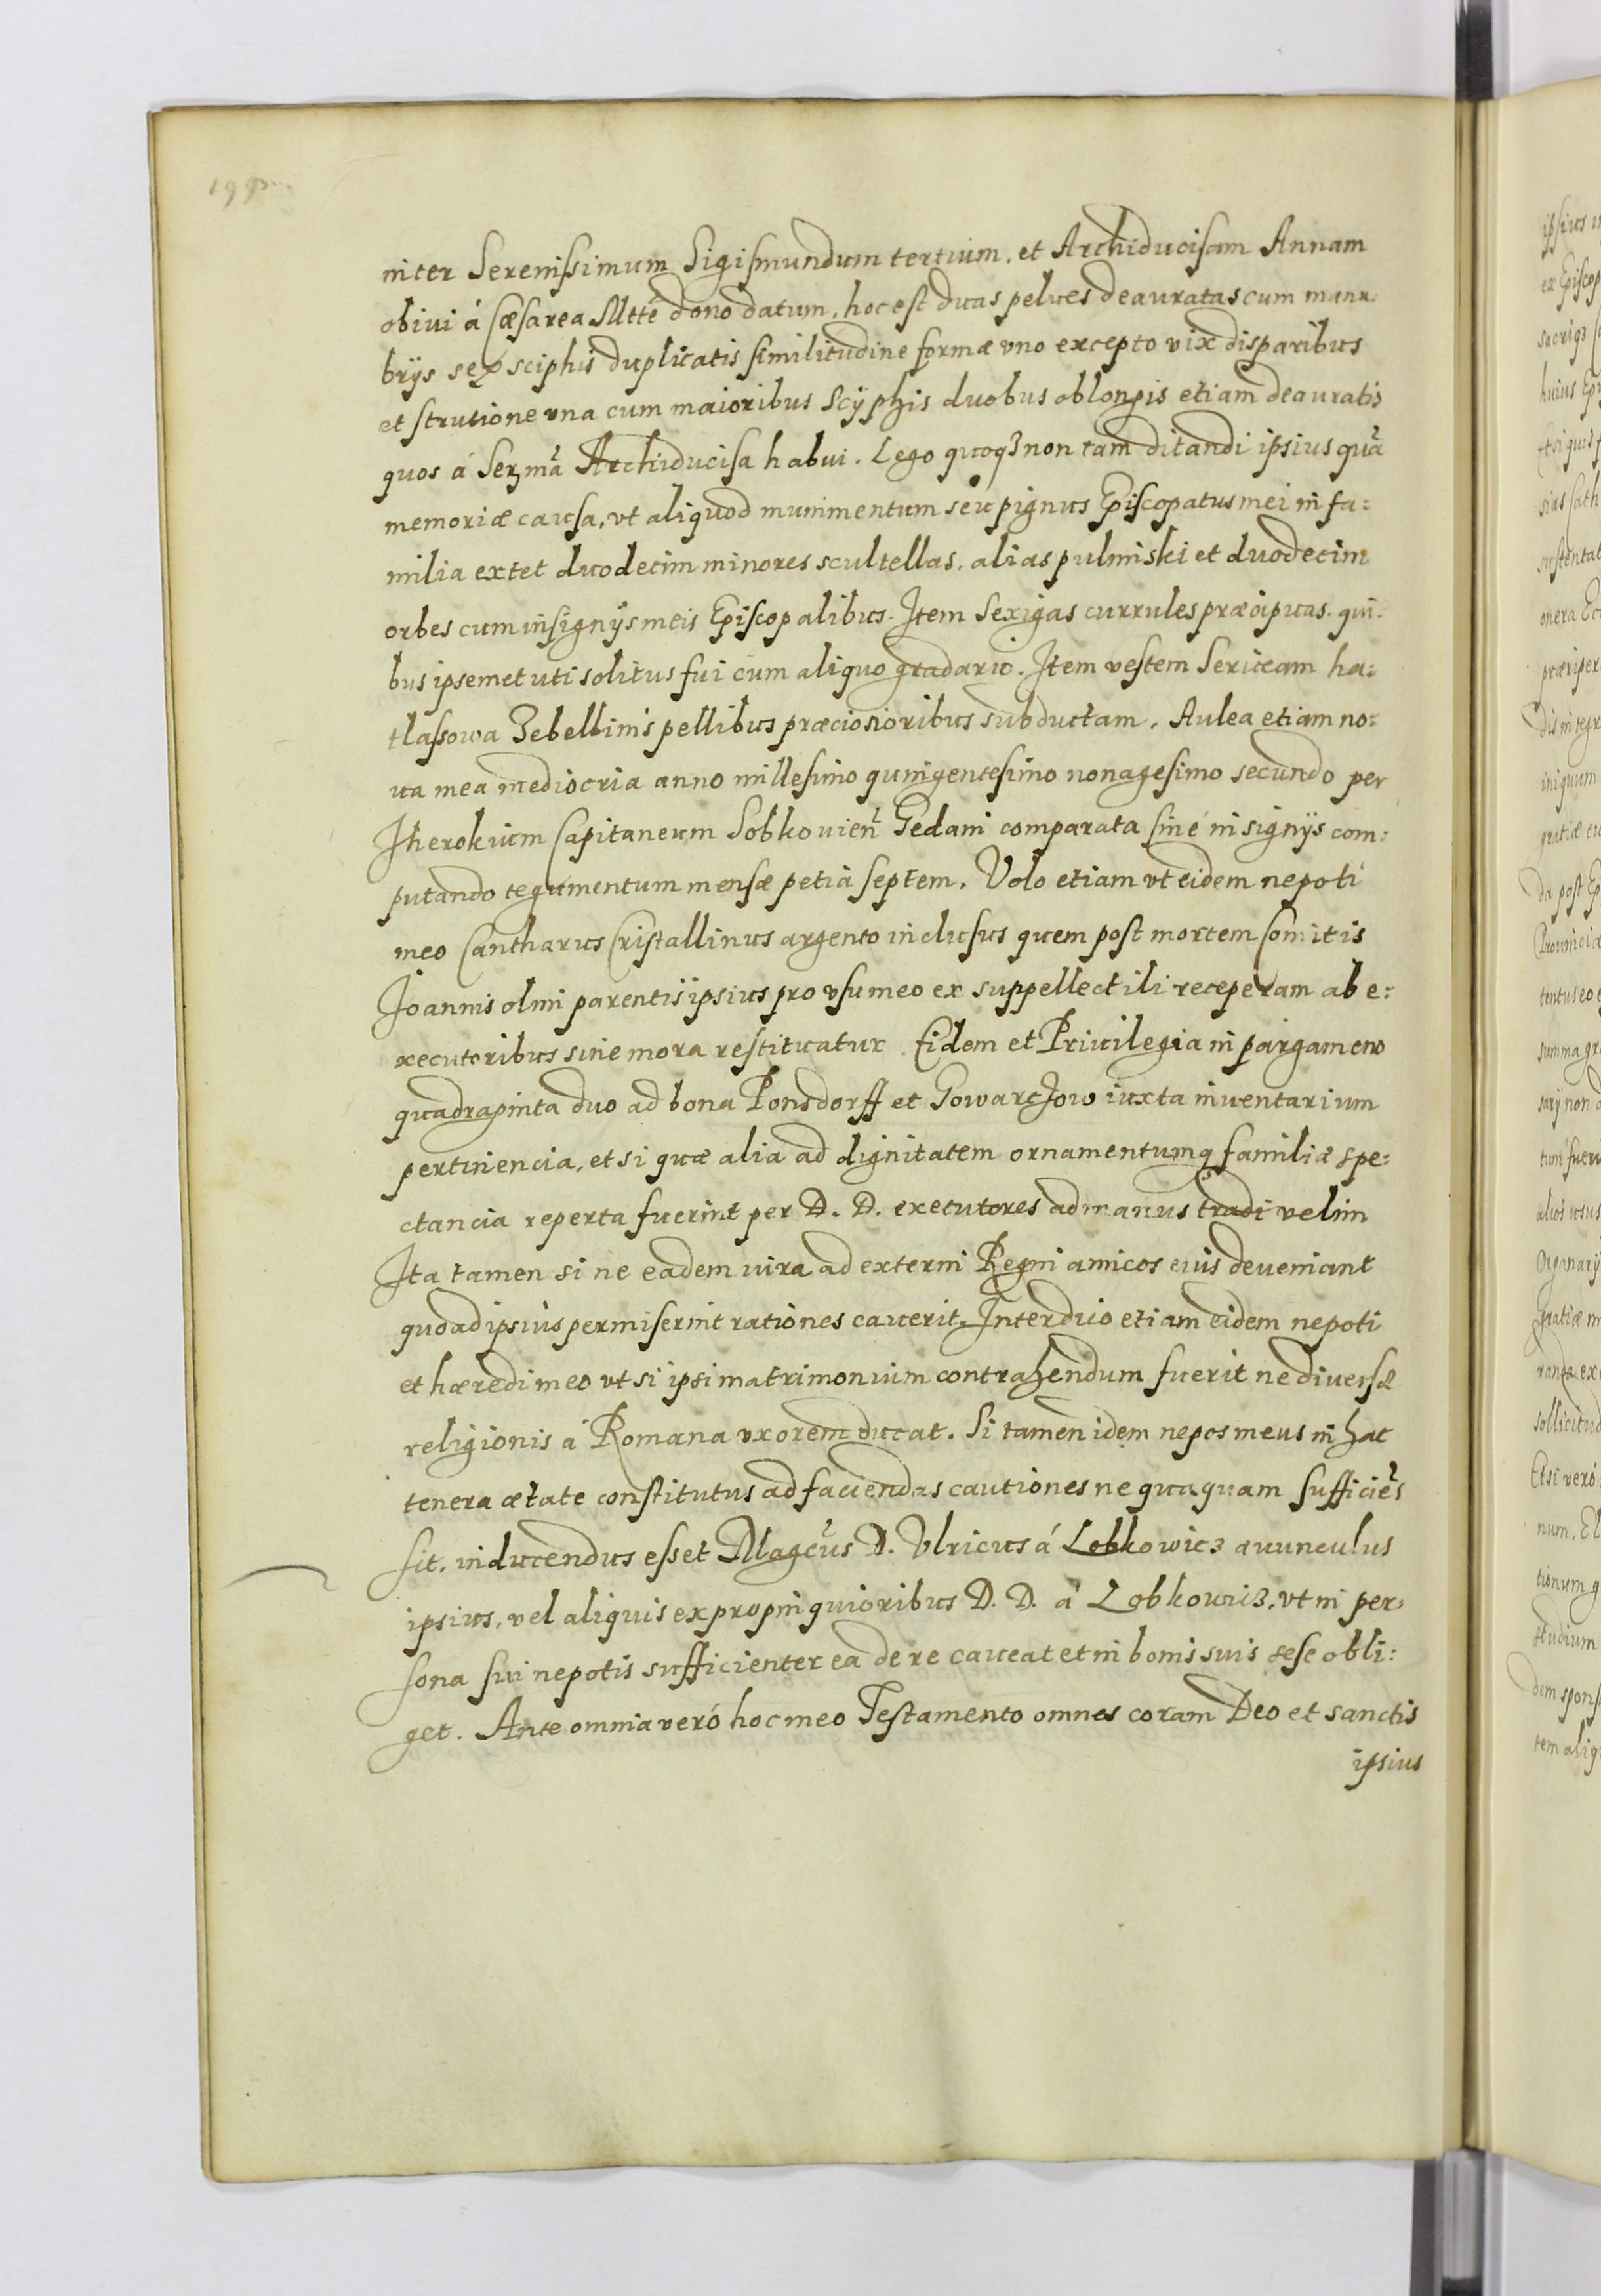 inter Serenissimum Sigismundum tertium, et Archiducisam Annam
obivi á Cæsarea Mtte dono datum, hoc est duas pelues deauratas cum manu:
brijs sex sciphis duplicatis similitudine formæ vno excepto vix disparibus
et strutione vna cum maioribus Scÿphis duobus oblongis etiam deauratis
quos á Serma Archiducisa habui. Lego quoqȝ non tam ditandi ipsius quã
memoriæ causa, vt aliquod munimentum seu pignus Episcopatus mei in fa:
milia extet duodecim minores scultellas, alias pulmiski et duodecim
orbes cum insignijs meis Episcopalibus. Item Sexigas currules præcipuas. qui:
bus ipsemet uti solitus fui cum aliquo gradario. Item vestem Sericeam ha:
tlassowa Zebellinis pellibus præciosioribus subductam. Aulea etiam no:
ua mea mediocria anno millesimo quingentesimo nonagesimo secundo per
Jherokium Capitaneum Sobkouien̄ Gedani comparata siné insignijs com:
putando tegumentum mensæ petia septem. Volo etiam vt eidem nepoti
meo Cantharus Cristallinus argento inclusus quem post mortem Comitis
Joannis olim parentis ipsius pro vsu meo ex suppellectili receperam ab e:
xecutoribus sine mora restituatur. Eidem et Priuilegia in pargameno
quadraginta duo ad bona Ponsdorff et Gowarczow iuxta inuentarium
pertinencia, et si quæ alia ad dignitatem ornamentumq familiæ spe:
ctancia reperta fuerint per D. D. executores ad manus tradi velim
Ita tamen si ne eadem iura ad externi Regni amicos eius deueniant
quoad ipsius permiserint rationes cauerit. Interdico etiam eidem nepoti
et hæredi meo vt si ipsi matrimonium contrahendum fuerit ne diuersæ
religionis á Romana vxorem ducat. Si tamen idem nepos meus in hac
tenera ætate constitutus ad faciendas cautiones ne quaquam sufficiẽs
sit, inducendus esset Magcus D. Vlricus á Lobkowicȝ auunculus
ipsius, vel aliquis ex propinquioribus D. D. á Lobkouicȝ, vt in per:
sona sui nepotis sufficienter ea de re caueat et in bonis suis sese obli:
get. Ante omnia veró hoc meo Testamento omnes coram Deo et sanctis
ipsius